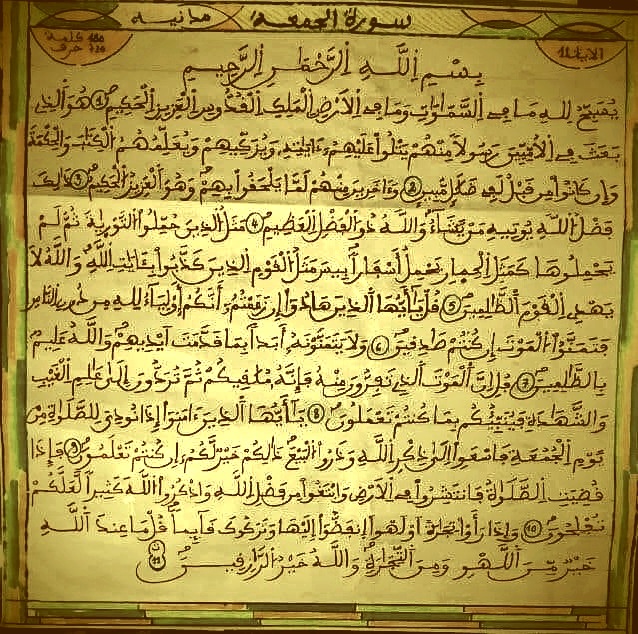 سورة الجمعة مدنية
180 كلمة
720 حرف
الآية 11
بِسْمِ اِللَّهِ اِلرَّحْمَٰنِ اِلرَّحِيمِ
يُسَبِّحُ لِلهِ مَا فِي اِلسَّمَٰوَٰتِ وَمَا فِي اِلَارْضِ اِلْمَلِكِ اِلْقُدُّوسِ اِلْعَزِيزِ اِلْحَكِيمِ 1 هُوَ اَلذِي
بَعَثَ فِي اِلُامِّيِّينَ رَسُولًا مِّنْهُمْ يَتْلُوا عَلَيْهِمُ ءَايَٰتِهِ وَيُزَكِّيهِمْ وَيُعَلِّمُهُمُ اُلْكِتَٰبَ وَالْحِكْمَةَ
وَإِن كَانُوا مِن قَبْلُ لَفِي ضَلَٰلٍ مُّبِينٍ 2 وَءَاخَرِينَ مِنْهُمْ لَمَّا يَلْحَقُوا بِهِمْ وَهُوَ اَلْعَزِيزُ اُلْحَكِيمُ 3 ذَٰلِكَ
فَضْلُ اُللَّهِ يُوتِيهِ مَنْ يَّشَاءُ وَاللَّهُ ذُو اُلْفَضْلِ اِلْعَظِيمِ 4 مَثَلُ اُلذِينَ حُمِّلُوا اُلتَّوْرَيٰةَ ثُمَّ لَمْ
يَحْمِلُوهَا كَمَثَلِ اِلْحِمَارِ يَحْمِلُ أَسْفَاراً بِيسَ مَثَلُ اُلْقَوْمِ اِلذِينَ كَذَّبُوا بِـَٔايَٰتِ اِللَّهِ وَاللَّهُ لَا
يَهْدِي اِلْقَوْمَ اَلظَّٰلِمِينَ 5 قُلْ يَٰأَيُّهَا اَلذِينَ هَادُوا إِن زَعَمْتُمُ أَنَّكُمُ أَوْلِيَاءُ لِلهِ مِن دُونِ اِلنَّاسِ
فَتَمَنَّوُا اُلْمَوْتَ إِن كُنتُمْ صَٰدِقِينَ 6 وَلَا يَتَمَنَّوْنَهُ أَبَداً بِمَا قَدَّمَتَ اَيْدِيهِمْ وَاللَّهُ عَلِيمٌ
بِالظَّٰلِمِينَ 7 قُلِ اِنَّ اَلْمَوْتَ اَلذِي تَفِرُّونَ مِنْهُ فَإِنَّهُ مُلَٰقِيكُمْ ثُمَّ تُرَدُّونَ إِلَىٰ عَٰلِمِ اِلْغَيْبِ
وَالشَّهَٰدَةِ فَيُنَبِّئُكُم بِمَا كُنتُمْ تَعْمَلُونَ 8 يَٰأَيُّهَا اَلذِينَ ءَامَنُوا إِذَا نُودِيَ لِلصَّلَوٰةِ مِنْ
يَوْمِ اِلْجُمُعَةِ فَاسْعَوِا اِلَىٰ ذِكْرِ اِللَّهِ وَذَرُوا اُلْبَيْعَ ذَٰلِكُمْ خَيْرٌ لَّكُمُ إِن كُنتُمْ تَعْلَمُونَ 9 فَإِذَا
قُضِيَتِ اِلصَّلَوٰةُ فَانتَشِرُوا فِي اِلَارْضِ وَابْتَغُوا مِن فَضْلِ اِللَّهِ وَاذْكُرُوا اُللَّهَ كَثِيراً لَّعَلَّكُمْ
تُفْلِحُونَ 10 وَإِذَا رَأَوْا تِجَٰرَةً اَوْ لَهْواً اِنفَضُّوا إِلَيْهَا وَتَرَكُوكَ قَائِماً قُلْ مَا عِندَ اَللَّهِ
خَيْرٌ مِّنَ اَللَّهْوِ وَمِنَ اَلتِّجَٰرَةِ وَاللَّهُ خَيْرُ اُلرَّٰزِقِينَ 11